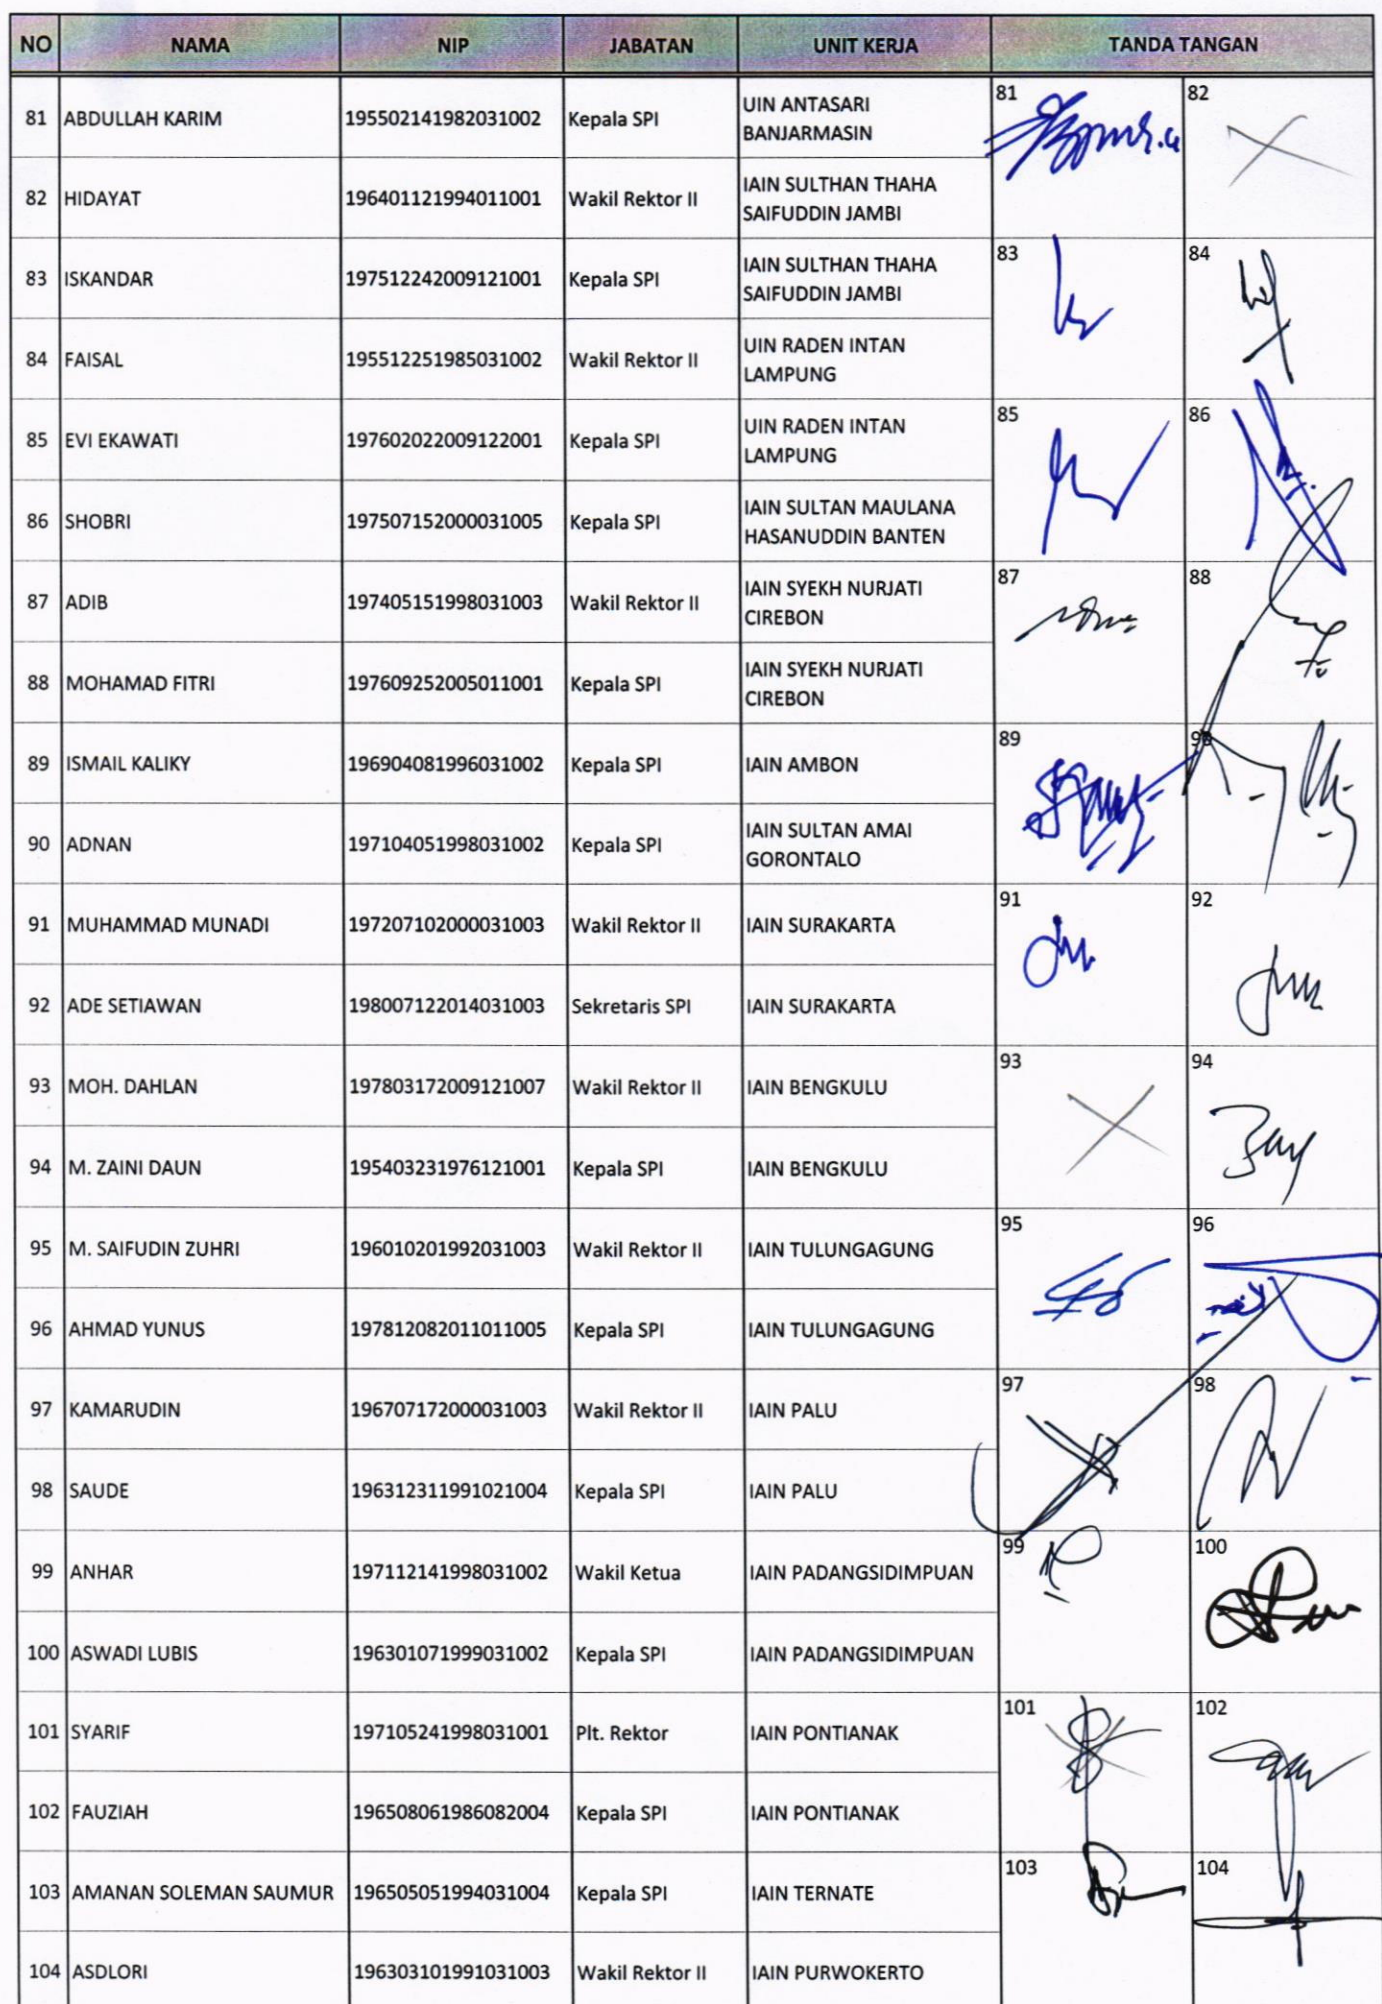 NO NAMA NIP JABATAN UNIT KERJA TANDA TANGAN
81 ABDULLAH KARIM 195502141982031002 Kepala SPI UIN ANTASARI
BANJARMASIN
81 82
82 HIDAYAT 196401121994011001 Wakil Rektor II IAIN SULTHAN THAHA
SAIFUDDIN JAMBI
83 ISKANDAR 197512242009121001 Kepala SPI IAIN SULTHAN THAHA
SAIFUDDIN JAMBI
83 84
84 FAISAL 195512251985031002 Wakil Rektor II UIN RADEN INTAN
LAMPUNG
85 EVI EKAWATI 197602022009122001 Kepala SPI UIN RADEN INTAN
LAMPUNG
85 86
86 SHOBRI 197507152000031005 Kepala SPI IAIN SULTAN MAULANA
HASANUDDIN BANTEN
87 ADIB 197405151998031003 Wakil Rektor II IAIN SYEKH NURJATI
CIREBON
87 88
88 MOHAMAD FITRI 197609252005011001 Kepala SPI IAIN SYEKH NURJATI
CIREBON
89 ISMAIL KALIKY 196904081996031002 Kepala SPI IAIN AMBON
89 90
90 ADNAN 197104051998031002 Kepala SPI IAIN SULTAN AMAI
GORONTALO
91 MUHAMMAD MUNADI 197207102000031003 Wakil Rektor II IAIN SURAKARTA
91 92
92 ADE SETIAWAN 198007122014031003 Sekretaris SPI IAIN SURAKARTA
93 MOH. DAHLAN 197803172009121007 Wakil Rektor II IAIN BENGKULU
93 94
94 M. ZAINI DAUN 195403231976121001 Kepala SPI IAIN BENGKULU
95 M. SAIFUDIN ZUHRI 196010201992031003 Wakil Rektor II IAIN TULUNGAGUNG
95 96
96 AHMAD YUNUS 197812082011011005 Kepala SPI IAIN TULUNGAGUNG
97 KAMARUDIN 196707172000031003 Wakil Rektor II IAIN PALU
97 98
98 SAUDE 196312311991021004 Kepala SPI IAIN PALU
99 ANHAR 197112141998031002 Wakil Ketua IAIN PADANGSIDIMPUAN
99 100
100 ASWADI LUBIS 196301071999031002 Kepala SPI IAIN PADANGSIDIMPUAN
101 SYARIF 197105241998031001 Plt. Rektor IAIN PONTIANAK
101 102
102 FAUZIAH 196508061986082004 Kepala SPI IAIN PONTIANAK
103 AMANAN SOLEMAN SAUMUR 196505051994031004 Kepala SPI IAIN TERNATE
103 104
104 ASDLORI 196303101991031003 Wakil Rektor II IAIN PURWOKERTO